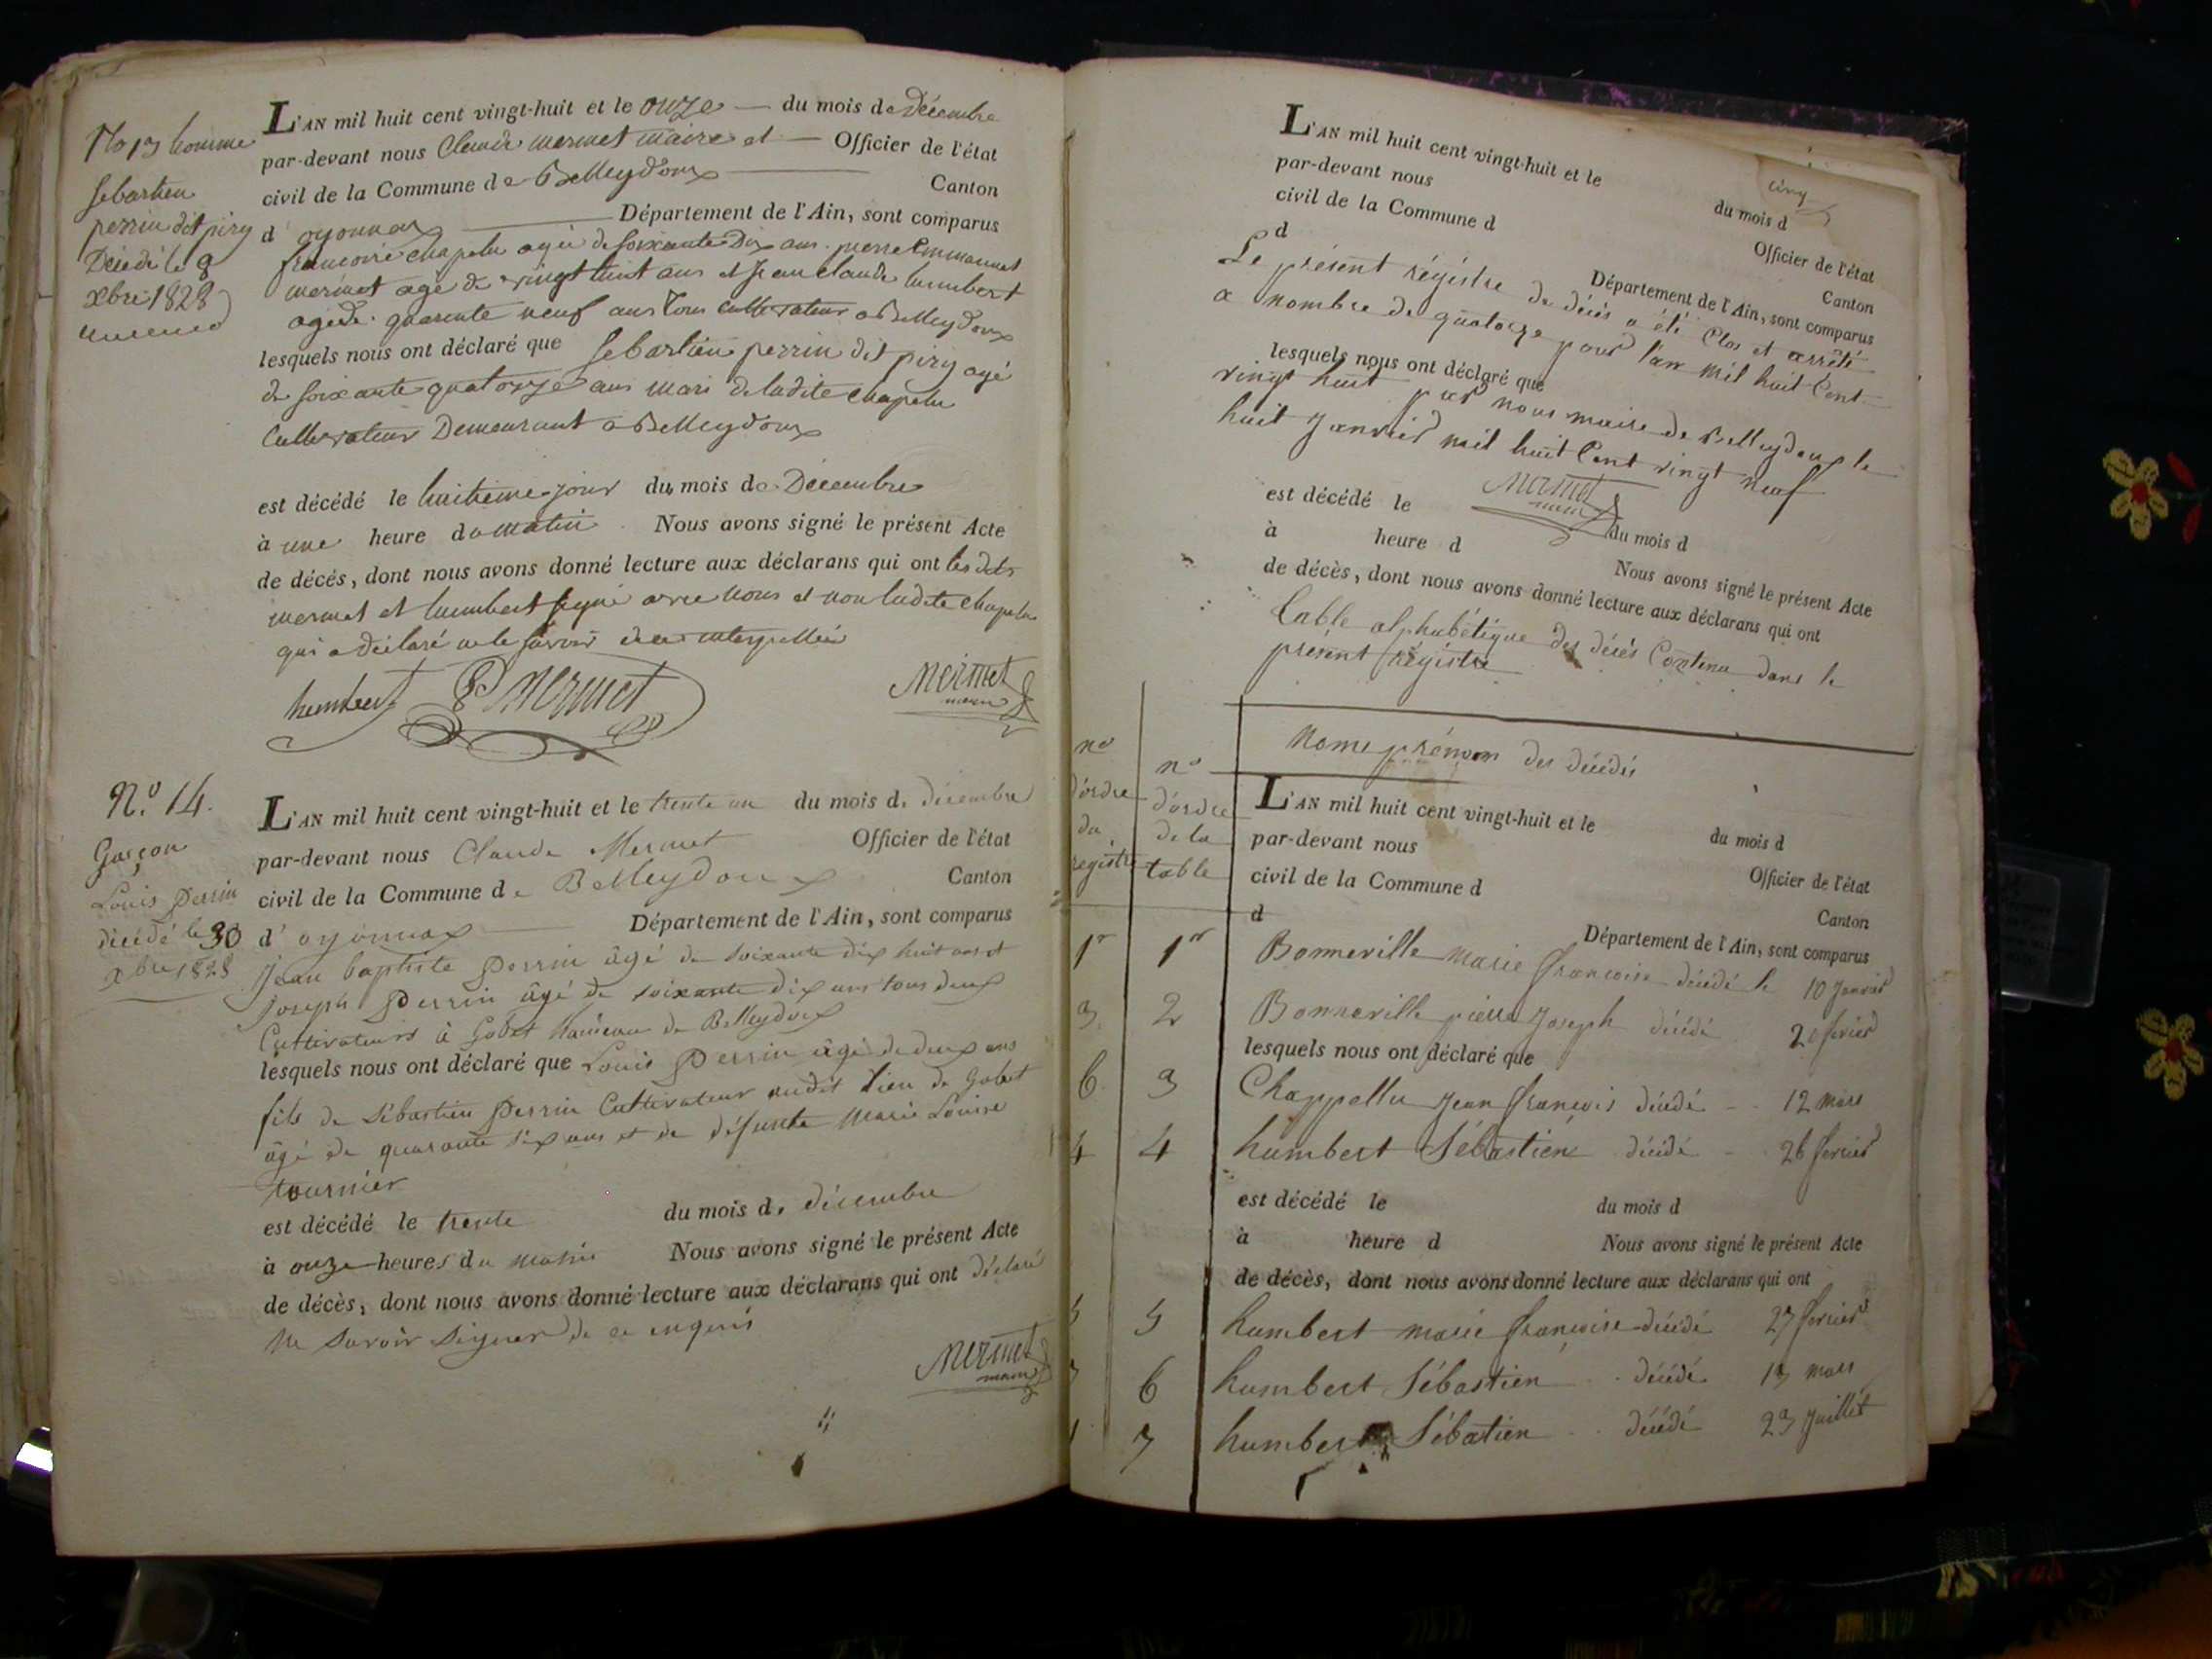 No 13 homme
Sebastien
perrin dit piry
Décédé le 8
xbre 1828
L'AN mil huit cent vingt-huit et le onze du mois de Décembre
par-devant nous Claude mermet maire et Officier de l'état
civil de la Commune de Belleydoux Canton
d oyonnax Département de l'Ain, sont comparus
francoise chapelu agée de soixante Dix ans. pierre Emmanuel
mermet agé de vingt huit ans et Jean claude humbert
agé de quarente neuf ans tous cultivateur a Belleydoux
lesquels nous ont déclaré que Sebastien perrin dit piry agé
de soixante quatorze ans mari de ladite chapelu
Cultivateur Demeurant a Belleydoux
est décédé le huitieme jour du mois de Décembre
à une heure du matin. Nous avons signé le présent Acte
de décès, dont nous avons donné lecture aux déclarans qui ont lesdits
mermet et humbert signé avec nous et non ladite chapelu
qui a déclaré ne le savoir de ce interpellée
humbert P E Mermet Mermet
maire
N.º 14.
Garçon
Louis Perrin
décédé le 30
xbre 1828
L'AN mil huit cent vingt-huit et le trente un du mois de décembre
par-devant nous Claude Mermet Officier de l'état
civil de la Commune de Belleydoux Canton
d'oyonnax Département de l'Ain, sont comparus
Jean baptiste Perrin âgé de soixante dix huit ans et
Joseph Perrin âgé de soixante dix ans tous deux
Cultivateurs à Gobet hameau de Belleydoux
lesquels nous ont déclaré que Louis Perrin âgé de deux ans
fils de Sébastien Perrin Cultivateur audit lieu de Gobet
âgé de quarante six ans et de défunte Marie Louise
tournier
est décédé le trente du mois de décembre
à onze heures du matin Nous avons signé le présent Acte
de décès, dont nous avons donné lecture aux déclarans qui ont déclaré
Ne savoir signer de ce enquis
Mermet
maire
cinq
L'AN mil huit cent vingt-huit et le du mois d
par-devant nous Officier de l'état
civil de la Commune d Canton
d Département de l'Ain, sont comparus
Le présent régistre de décès a été Clos et arrêté
a nombre de quatorze pour l'an mil huit Cent
lesquels nous ont déclaré que
vingt huit par nous maire de Belleydoux le
huit Janvier mil huit Cent vingt neuf
Mermet
maire
est décédé le du mois d
à heure d Nous avons signé le présent Acte
de décès, dont nous avons donné lecture aux déclarans qui ont
Table alphabétique des décès Contenu dans le
présent régistre
no d'ordre du régistre
no d'ordre de la table
Noms prénom des décédés
L'AN mil huit cent vingt-huit et le du mois d
par-devant nous Officier de l'état
civil de la Commune d Canton
d Département de l'Ain, sont comparus
1er 1er Bonneville marie francoise décédé le 10 Janvier
3 2 Bonneville pierre Joseph décédé 20 fevrier
lesquels nous ont déclaré que
6 3 Chappellu Jean francois décédé 12 mars
4 4 humbert Sébastien décédé 26 fevrier
est décédé le du mois d
à heure d Nous avons signé le présent Acte
de décès, dont nous avons donné lecture aux déclarans qui ont
5 5 humbert marie francoise décédé 27 fevrier
6 humbert Sébastien décédé 13 mars
7 humbert Sébatien décédé 23 Juillet